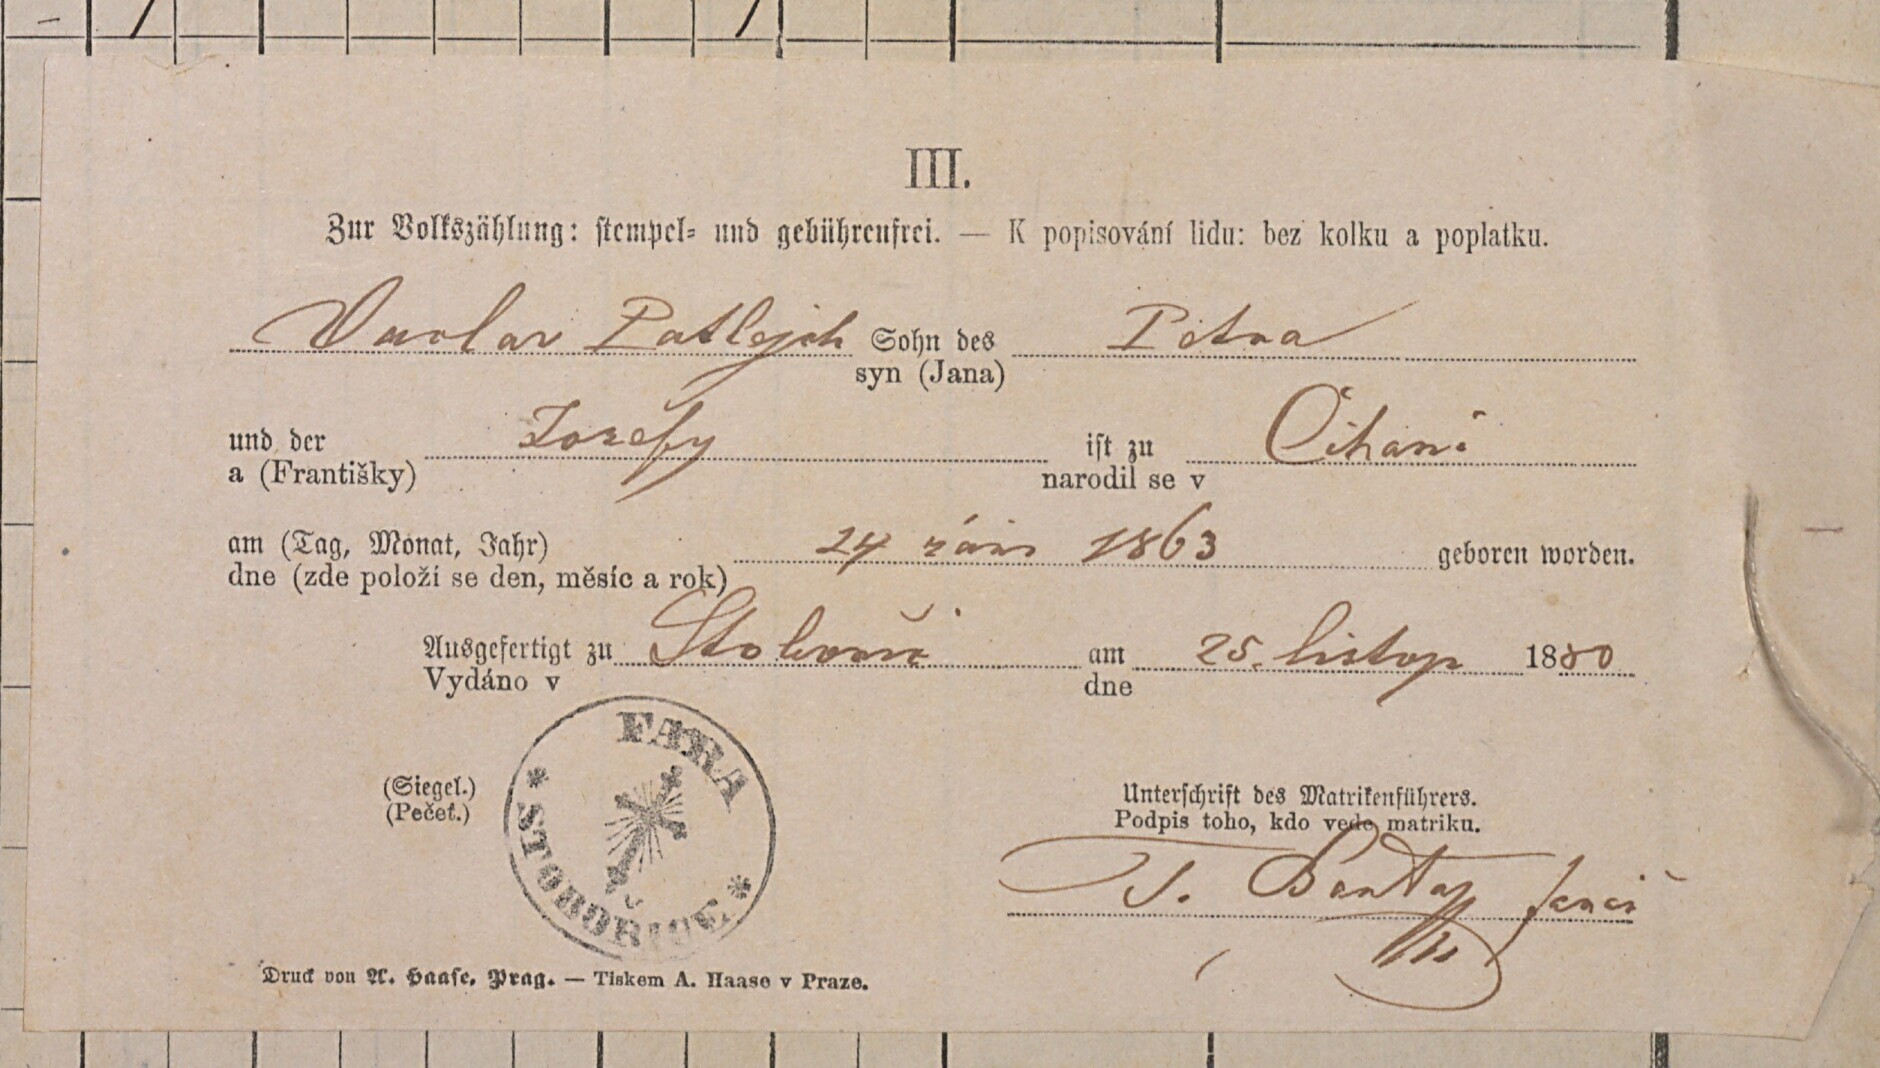 III.
Zur Volkszählung: stempel- und gebührenfrei. — K popisování lidu: bez kolku a poplatku.
Vaclav Patlejch Sohn des Petra
syn (Jana)
und der Josefy ist zu Cihani
a (Františky) narodil se v
am (Tag, Monat, Jahr) 24 září 1863 geboren worden.
dne (zde položí se den, měsíc a rok)
Ausgefertigt zu am 25. listop 1880
Vydáno v dne
FARA
STOBOŘICE
(Siegel.)
(Pečeť.)
Unterschrift des Matrikenführers.
Podpis toho, kdo vede matriku.
Druck von A. Haase, Prag. — Tiskem A. Haase v Praze.